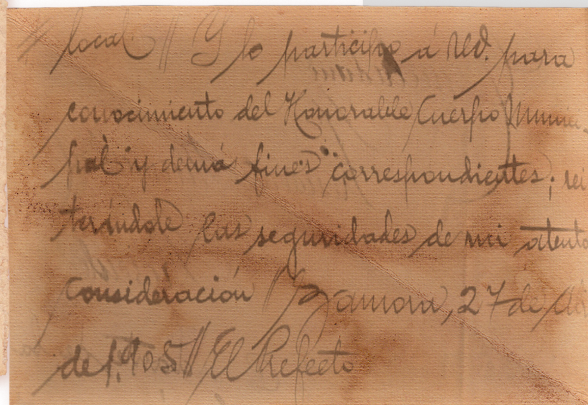 local // Y lo participo á Ud. para
conocimiento del Honorable Cuerpo Munici
pal y demás fines correspondientes; rei
terándole las seguridades de mi atenta
consideración // Zamora, 27 de
de 1.905 // El Prefecto